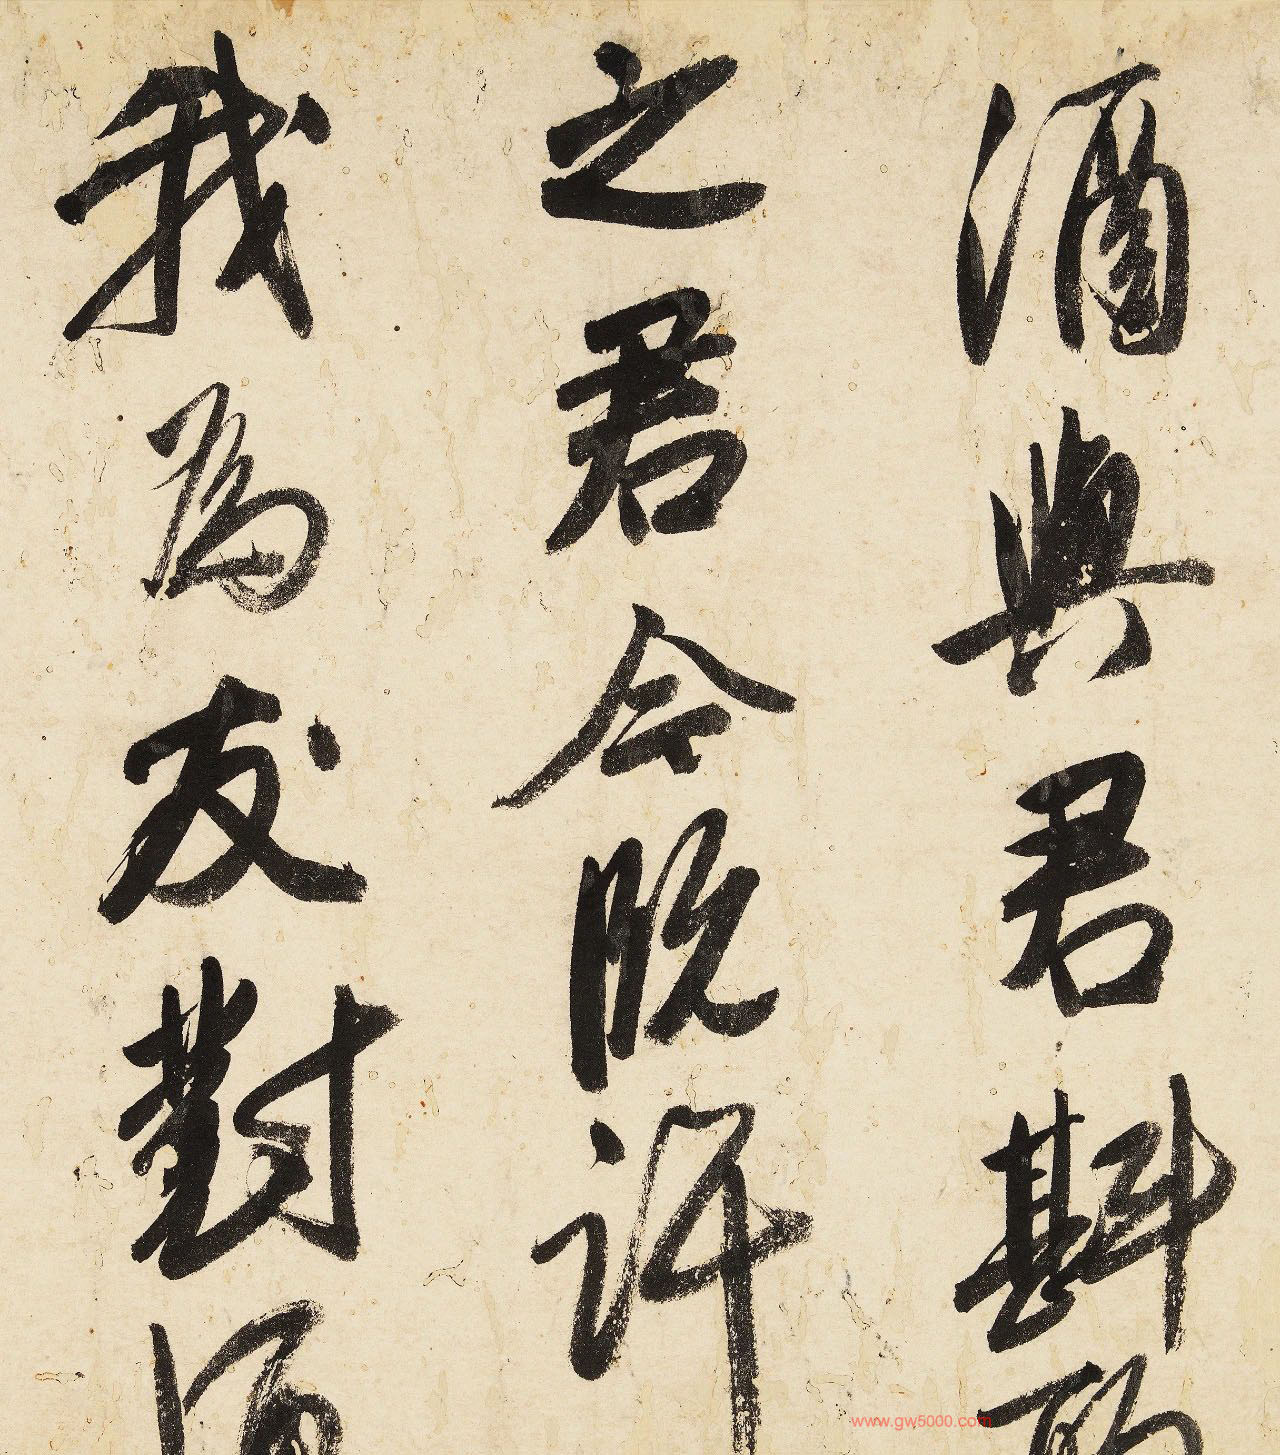 酒與君斟酌
之君今既許
我為友對酒
www.gw5000.com